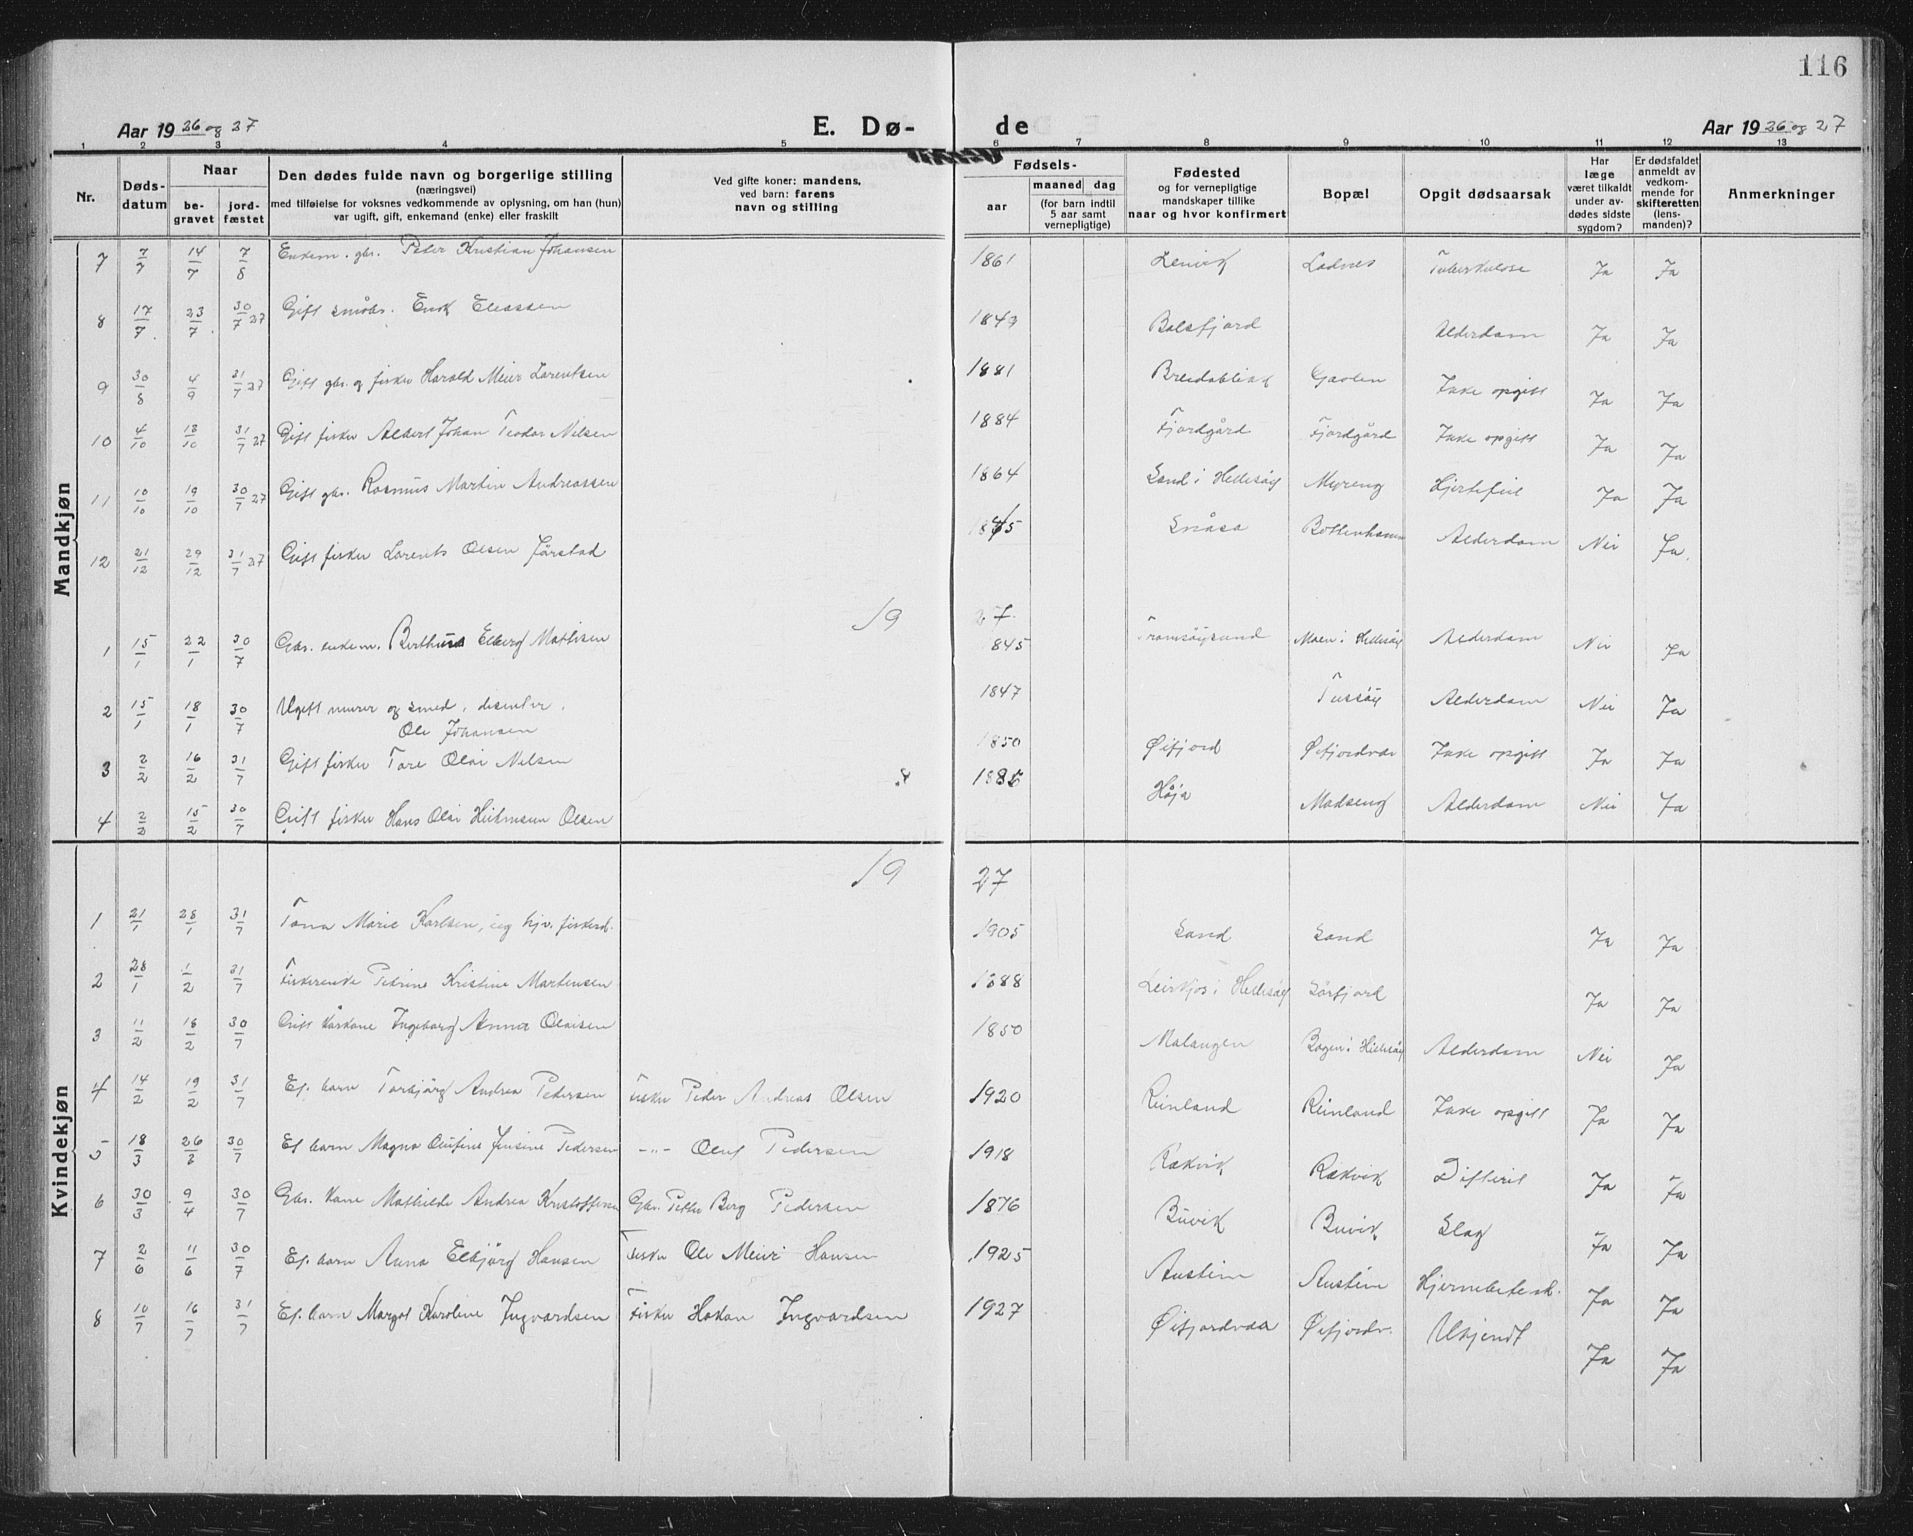 116
Aar 19 26 og 27
E. Dø-
de
Aar 19 26 og 27
1 2 3 4 5 6 7 8 9 10 11 12 13
Nr.
Døds-
datum
Naar
be-
gravet
jord-
fæstet
Den dødes fulde navn og borgerlige stilling
(næringsvei)
med tilføielse for voksnes vedkommende av oplysning, om han (hun)
var ugift, gift, enkemand (enke) eller fraskilt
Ved gifte koner: mandens,
ved barn: farens
navn og stilling
Fødsels-
aar
maaned dag
(for barn indtil
5 aar samt
vernepligtige)
Fødested
og for vernepligtige
mandskaper tillike
naar og hvor konfirmert
Bopæl
Opgit dødsaarsak
Har
læge
været tilkaldt
under av-
dødes sidste
sygdom?
Er dødsfaldet
anmeldt av
vedkom-
mende for
skifteretten
(lens-
manden)?
Anmerkninger
Mandkjøn
7 7/7 14/7 7/8 Enkem. gbr. Peter Kristian Johansen 1861 Lenvik Ladnes Tuberkulose Ja Ja
8 17/7 23/7 30/7 27 Gift småbr. Enok Eleassen 1843 Balsfjord Alderdom Ja Ja
9 30/8 4/9 31/7 27 Gift gbr. og fisker Harald Meier Larentsen 1881 Breidablikk Gavlen Ikke opgitt Ja Ja
10 4/10 13/10 31/7 27 Gift fisker Albert Johan Teodor Nilsen 1884 Fjordgård Fjordgård Ikke opgitt Ja Ja
11 10/10 19/10 30/7 27 Gift gbr. Rasmus Martin Andreassen 1864 Sand i Hellesöy Myreng Hjertefeil Ja Ja
12 21/12 29/12 31/7 27 Gift fisker Lorents Olsen Jørstad Snåsa Bottenhamn Alderdom Nei Ja.
19 27.
1 15/1 22/1 30/7 Gbr. enkem. Elberg Mathisen 845 Tromsöysund Moen i Hellesöy Alderdom Nei Ja
2 15/1 18/1 30/7 Ugift murer og smed, disenter.
Ole Johansen 1847 Tussöy Alderdom Nei Ja
3 2/2 16/2 31/7 Gift fisker Tore Olai Nilsen 1850 Øifjord Øifjordvær Ikke opgitt Ja Ja
4 2/2 15/2 30/7 Gift fisker Hans Olai Olsen Höja Madseng Alderdom Nei Ja
Kvindekjøn
19 27
1 21/1 28/1 31/7 Tona Marie Karlsen, ug hjv. fiskerd. 1905 Sand Sand Ja Ja
2 28/1 1/2 31/7 Fiskerenke Petrine Kristine Martinsen 1888 i Hellesöy Sörfjord Ja Ja
3 11/2 18/2 30/7 Gift kårkone Ingeborg Anna Olaisen 1850 Malangen Bogen i Hillesöy Alderdom Nei Ja
4 14/2 19/2 31/7 Ef. barn Torbjörg Andrea Pedersen Fisker Peder Andreas Olsen 1920 Reinland Reinland Ikke opgitt Ja Ja
5 18/3 26/3 30/7 Ef barn Magna Olufine Jensine Pedersen -"- Oluf Pedersen 1918 Rækvik Rækvik Difterit Ja Ja
6 30/3 9/4 30/7 Gbr. kone Mathilde Andrea Kristoffersen Gbr. Petter Berg Pedersen 1876 Buvik Buvik Slag Ja Ja
7 2/6 11/6 30/7 Ef. barn Anna Elbjörg Hansen Fisker Ole Meier Hansen 1925 Austein Austein Hjernebetensk. Ja Ja
8 10/7 16/7 31/7 Ef. barn Margot Karoline Ingvardsen Fisker Hakon Ingvardsen 1927 Øifjordvær Øifjordv. Ukjendt Ja Ja